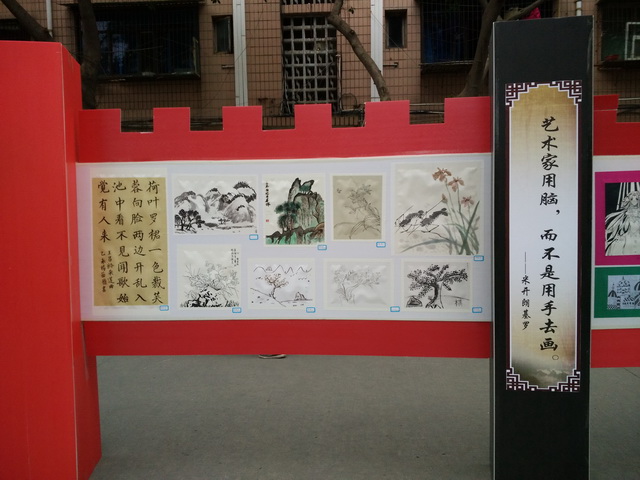 荷叶罗裙一色裁芙
蓉向脸两边开乱入
池中看不见闻歌始
觉有人来
艺术家用脑，而不是用手去画。
——米开朗基罗